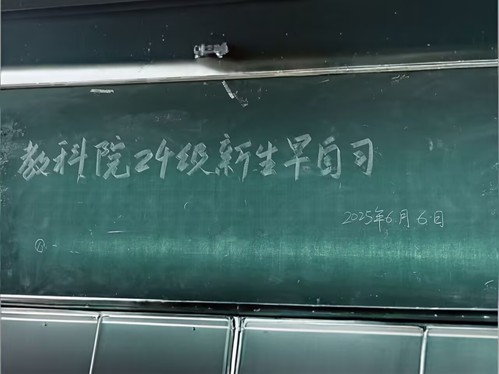 教科院24级新生早自习
2025年6月6日